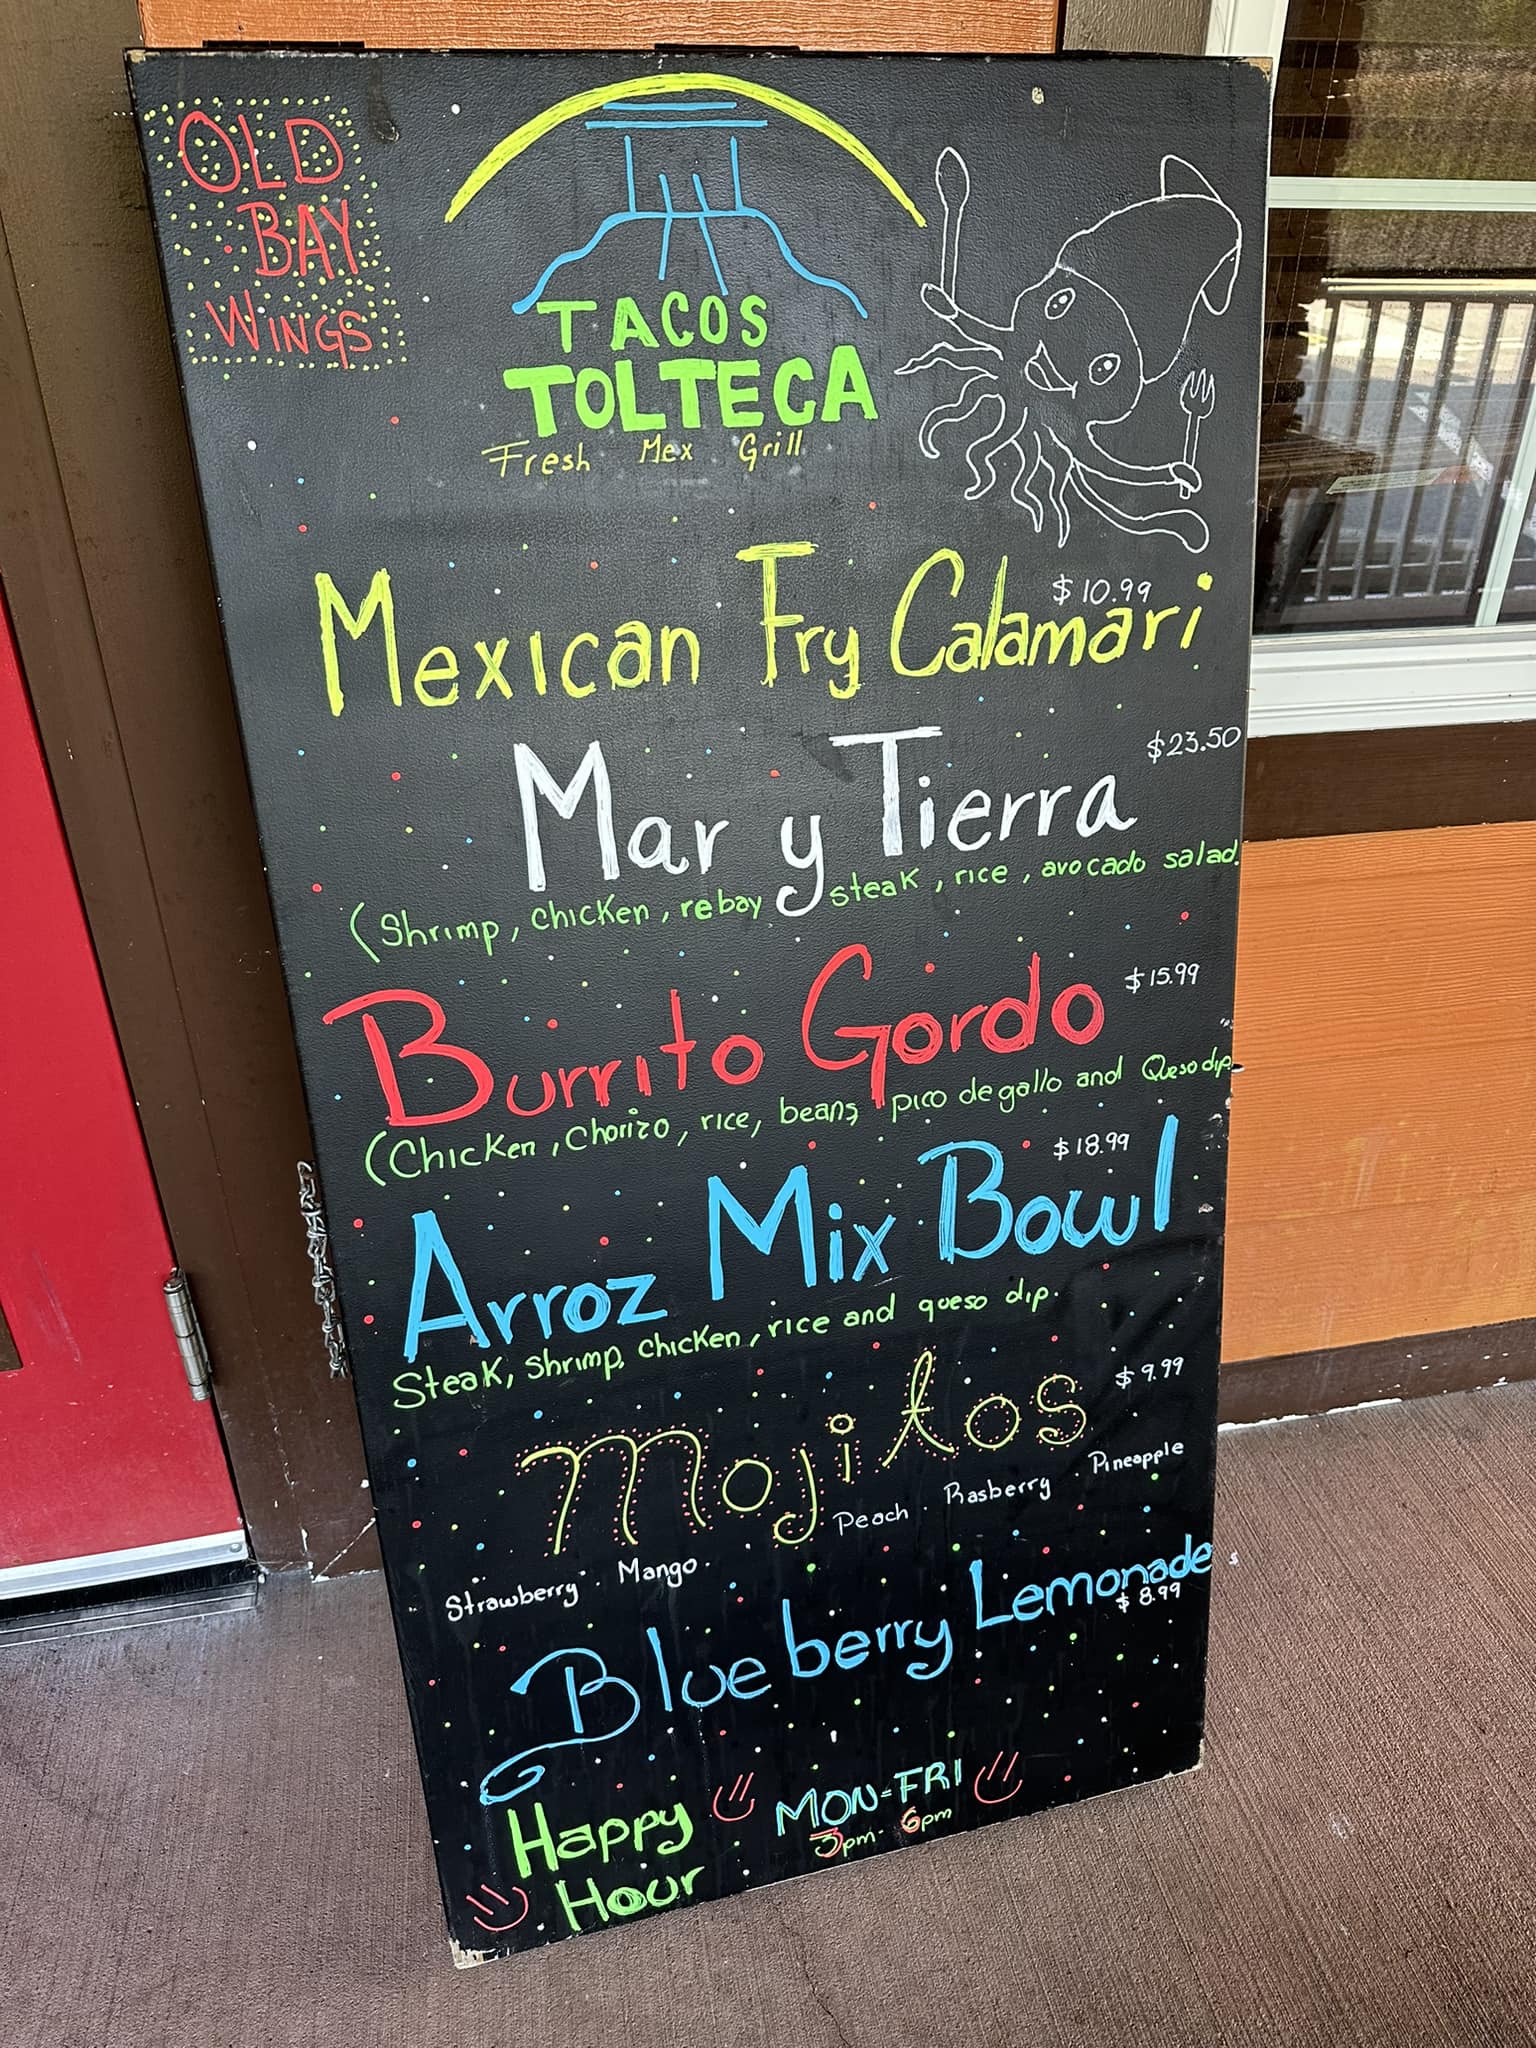 OLD
BAY
WINGS
TACOS
TOLTECA
Fresh Mex Grill
$10.99
Mexican Fry Calamari
$23.50
Mar y Tierra
(Shrimp, chicken, rebay steak, rice, avocado salad.
$15.99
Burrito Gordo
(Chicken, Chorizo, rice, beans, pico de gallo and Queso dip
$18.99
Arroz Mix Bowl
Steak, Shrimp, chicken, rice and queso dip.
$9.99
Mojitos
Strawberry · Mango · Peach · Rasberry · Pineapple
Blueberry Lemonade
$8.99
Happy
Hour
MON-FRI
3pm-6pm